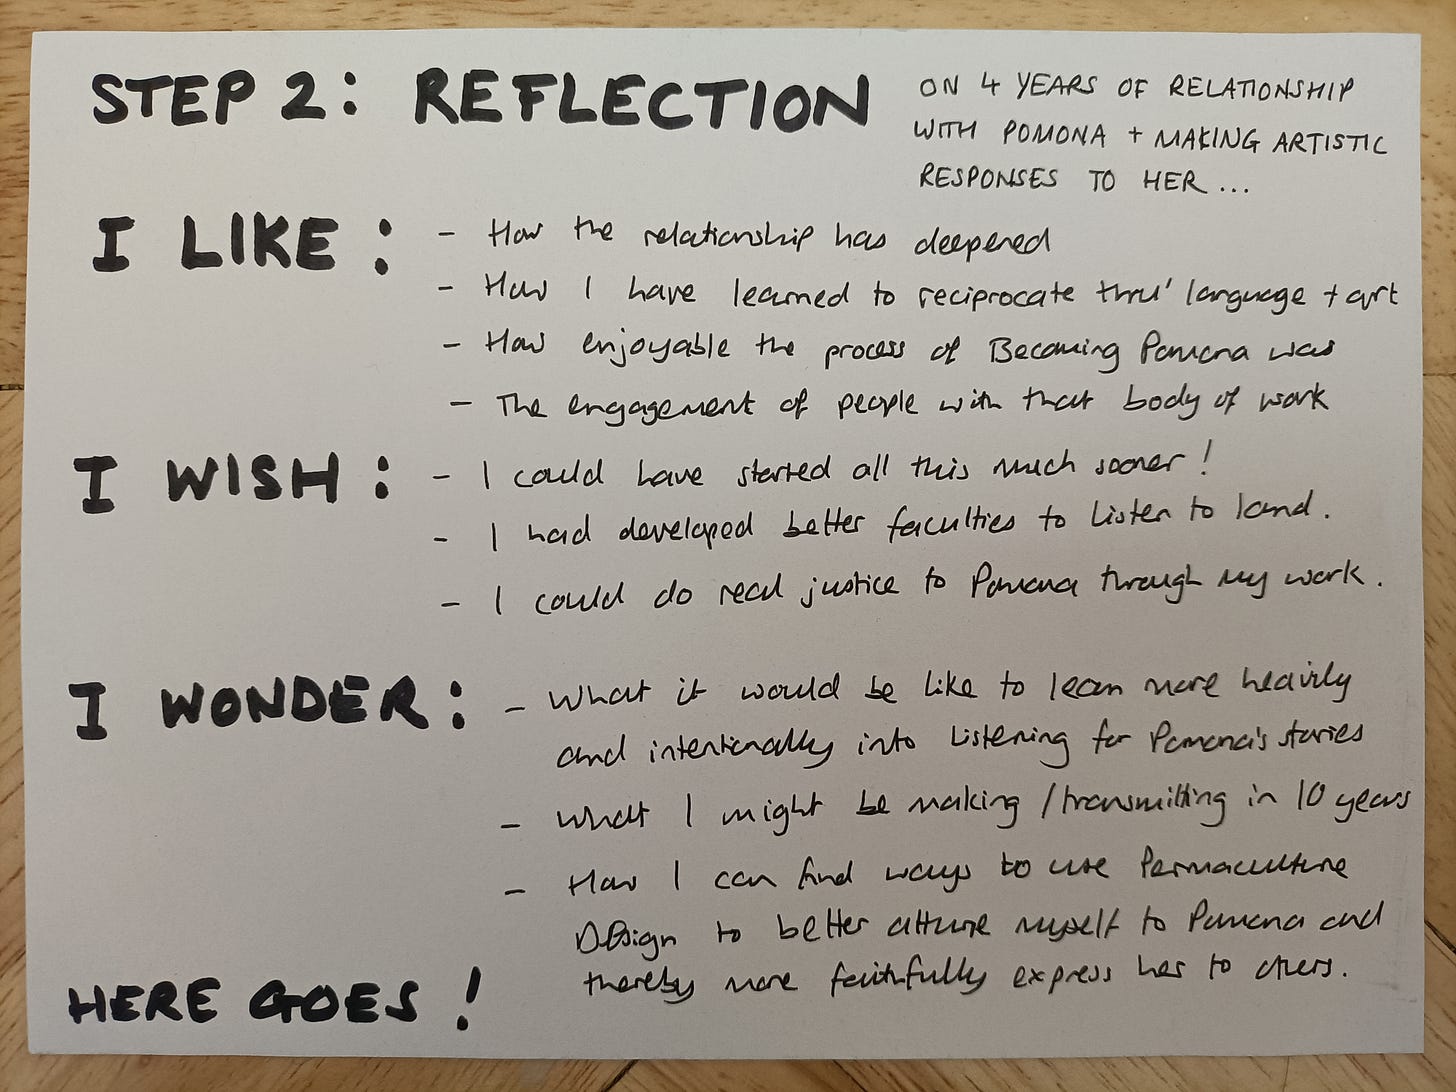 STEP 2: REFLECTION
ON 4 YEARS OF RELATIONSHIP
WITH POMONA + MAKING ARTISTIC
RESPONSES TO HER...
I LIKE:
- How the relationship has deepened
- How I have learned to reciprocate thru' language + art
- How enjoyable the process of Becoming Pomona was
- The engagement of people with that body of work
I WISH:
- I could have started all this much sooner!
- I had developed better faculties to listen to land.
- I could do real justice to Pomona through my work.
I WONDER:
- What it would be like to lean more heavily
and intentionally into listening for Pomona's stories
- What I might be making/transmitting in 10 years
- How I can find ways to use Permaculture
Design to better attune myself to Pomona and
thereby more faithfully express her to others.
HERE GOES!